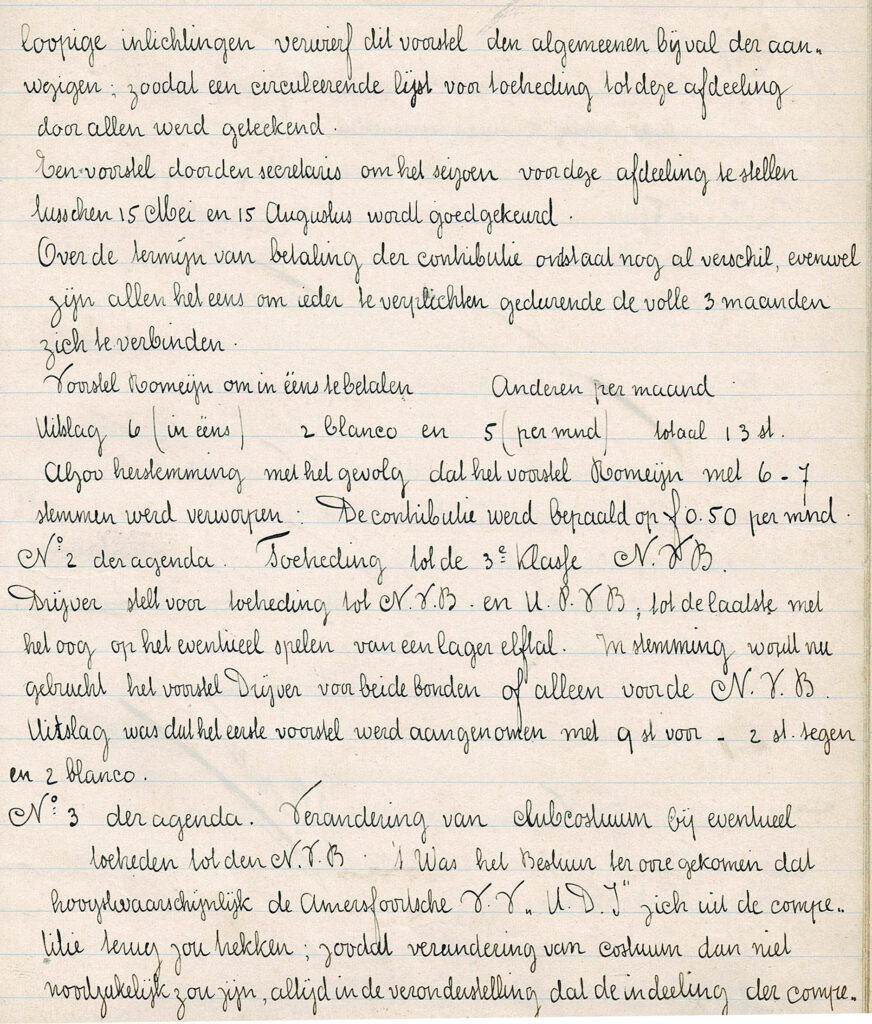 loopige inlichtingen verwierf dit voorstel den algemeenen bijval der aan„
wezigen ; zoodat een circuleerende lijst voor toetreding tot deze afdeeling
door allen werd geteekend.
Een voorstel door den secretaris om het seizoen voor deze afdeeling te stellen
tusschen 15 Mei en 15 Augustus wordt goedgekeurd.
Over de termijn van betaling der contributie ontstaat nog al verschil, evenwel
zijn allen het eens om ieder te verplichten gedurende de volle 3 maanden
zich te verbinden.
Voorstel Romeijn om in ééns te betalen Anderen per maand
Uitslag 6 (in ééns) 2 blanco en 5 (per mnd) totaal 13 st.
Alzoo herstemming met het gevolg dat het voorstel Romeijn met 6 - 7
stemmen werd verworpen : De contributie werd bepaald op f 0.50 per mnd.
No 2 der agenda. Toetreding tot de 3e Klasse N.V.B.
Drijver stelt voor toetreding tot N.V.B. en U.P.V.B; tot de laatste met
het oog op het eventieel spelen van een lager elftal. In stemming wordt nu
gebracht het voorstel Drijver voor beide bonden of alleen voor de N.V.B.
Uitslag was dat het eerste voorstel werd aangenomen met 9 st voor - 2 st. tegen
en 2 blanco.
No 3 der agenda. Verandering van clubcostuum bij eventueel
toetreden tot den N.V.B. 't Was het Bestuur ter oore gekomen dat
hoogstwaarschijnlijk de Amersfoortsche V.V. „U.D.I" zich uit de compe„
titie terug zou trekken ; zoodat verandering van costuum dan niet
noodzakelijk zou zijn, altijd in de veronderstelling dat de indeeling der compe„